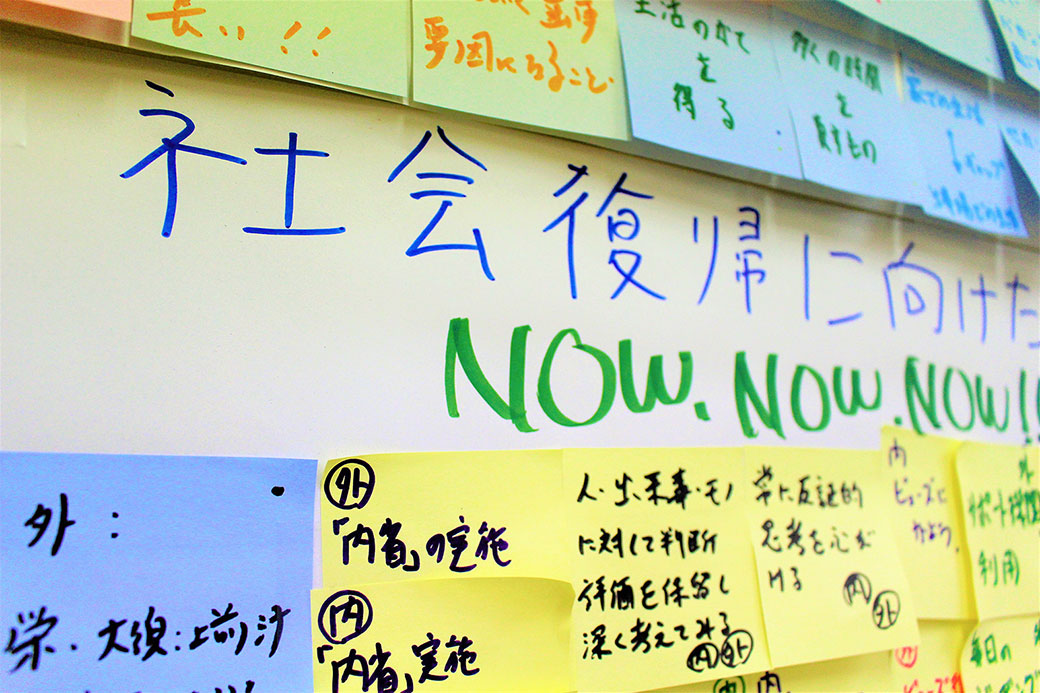 長い!!
要因になること
生活のかて
を
得る
多くの時間
を
費すもの
ギャップ
社会復帰に向けた
NOW.NOW.NOW!!
外:
栄・大須:上前津
外
「内省」の実施
内
「内省」実施
人・出来事・モノ
に対して判断
評価を保留し
深く考えてみる
内 外
常に反証的
思考を心が
ける
内 外
内
ビューズに
かよう。
外
サポート機関
利用
毎日の
内